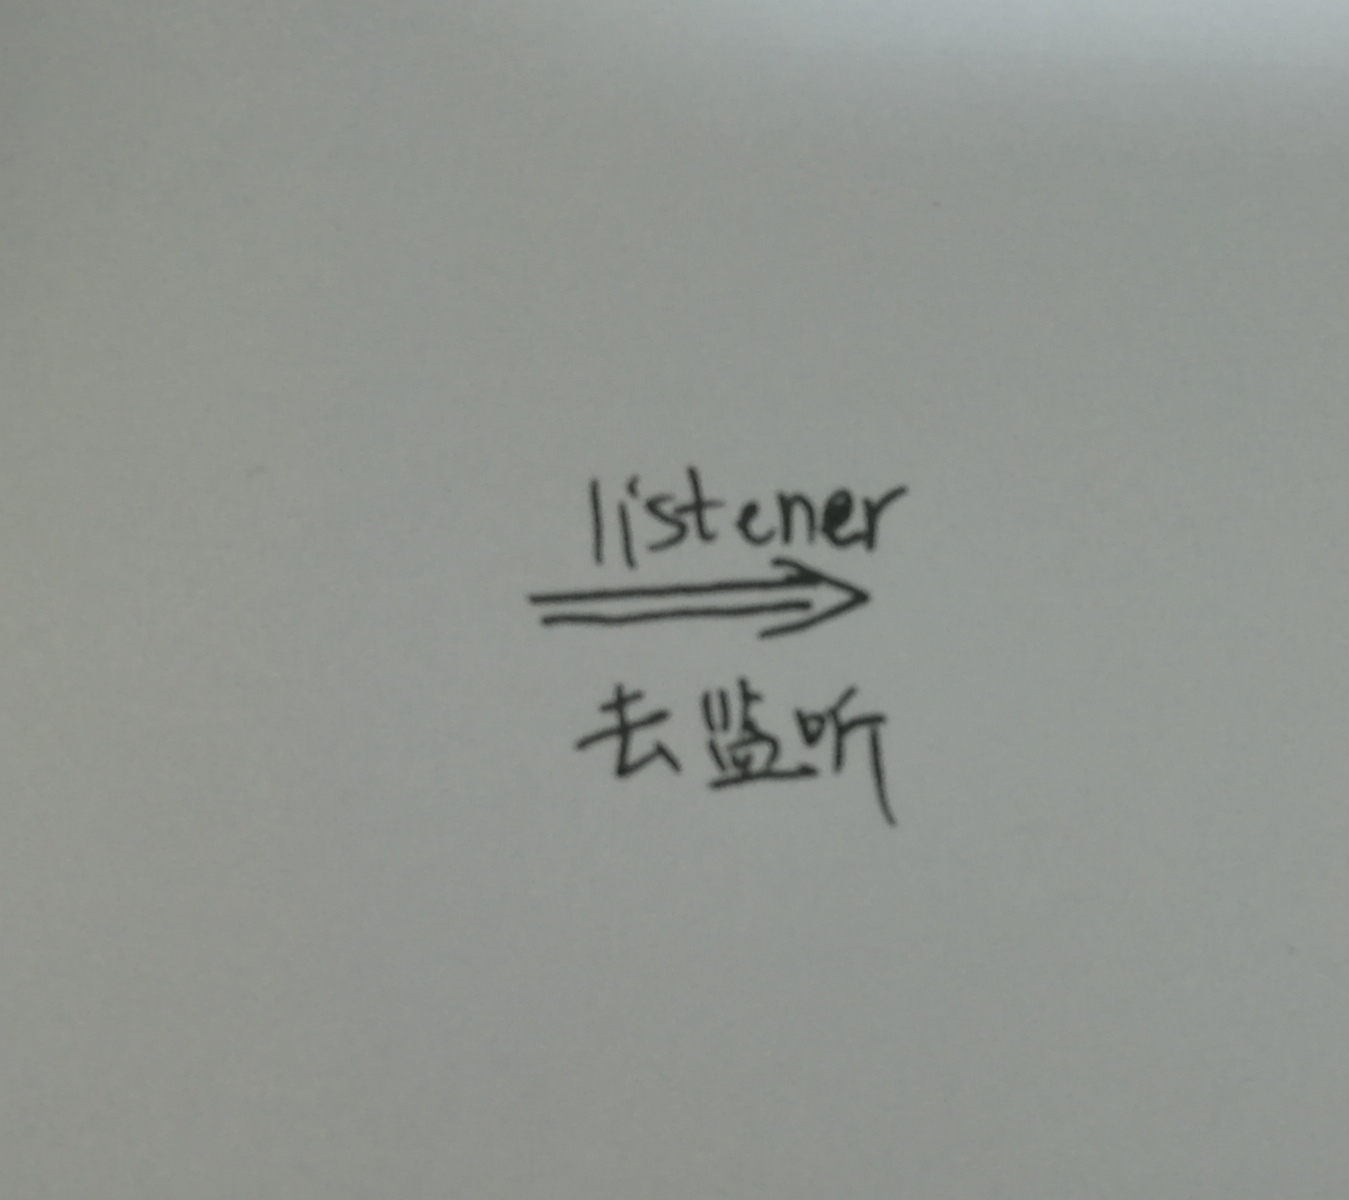 listener
去监听